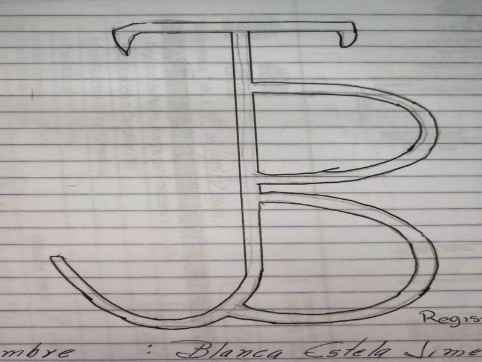 JB
Regis
mbre : Blanca Estela Jime